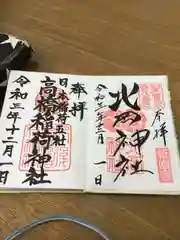 奉拝
北岡神社
令和三年十二月一日
奉拝
日本稲荷五社
高橋稲荷神社
令和三年十二月一日